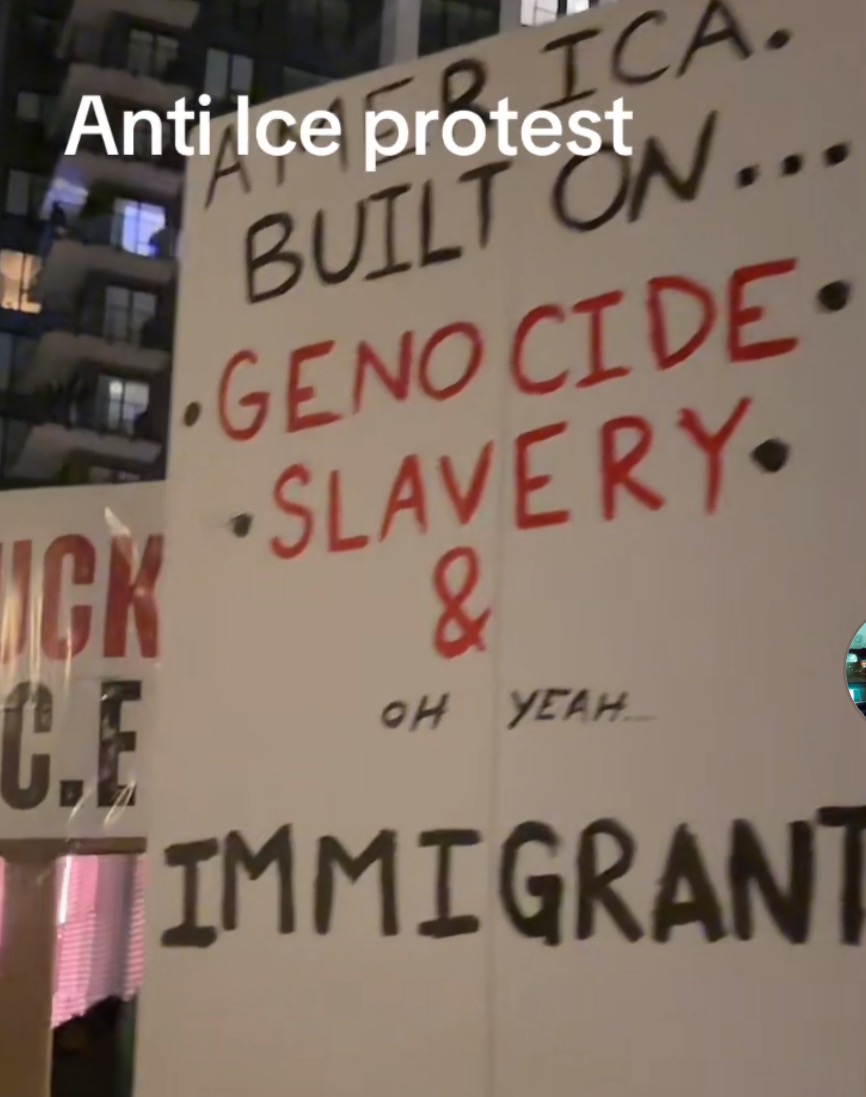 Anti Ice protest
AMERICA.
BUILT ON...
•GENOCIDE•
•SLAVERY•
&
OH YEAH...
IMMIGRANT
UCK
C.E